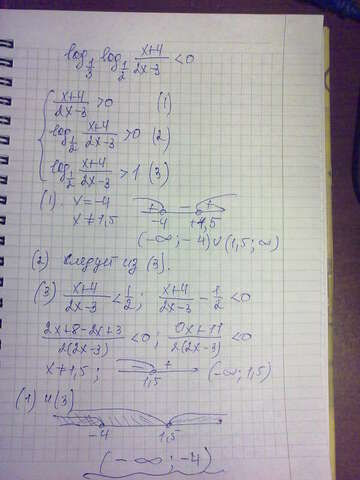 log_{1/3} log_{1/2} (x+4)/(2x-3) < 0
{ (x+4)/(2x-3) > 0 (1)
log_{1/2} (x+4)/(2x-3) > 0 (2)
log_{1/2} (x+4)/(2x-3) > 1 (3)
(1). x=-4
x≠1,5
+ - +
-4 +1,5
(-∞; -4) ∪ (1,5; ∞)
(2) следует из (3).
(3) (x+4)/(2x-3) < 1/2; (x+4)/(2x-3) - 1/2 < 0
(2x+8-2x+3)/(2(2x-3)) < 0; (0x+11)/(2(2x-3)) < 0
x≠1,5; - + (-∞; 1,5)
1,5
(1) и (3)
-4 1,5
(-∞; -4)